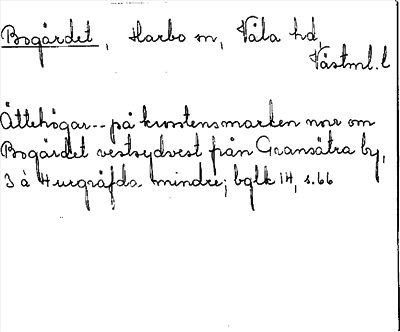 Bogärdet, Harbo sn, Våla hd,
Västml. l
Ättehögar -- på kronstensmarken norr om
Bogärdet vestsydvest från Gransätra by,
3 à 4 urgräfda mindre; bglk 14, s. 66